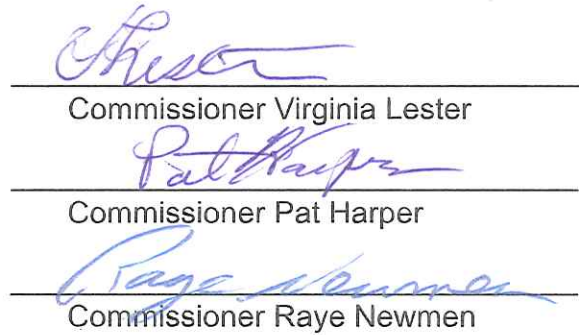 VLester
Commissioner Virginia Lester
Pat Harper
Commissioner Pat Harper
Raye Newmen
Commissioner Raye Newmen